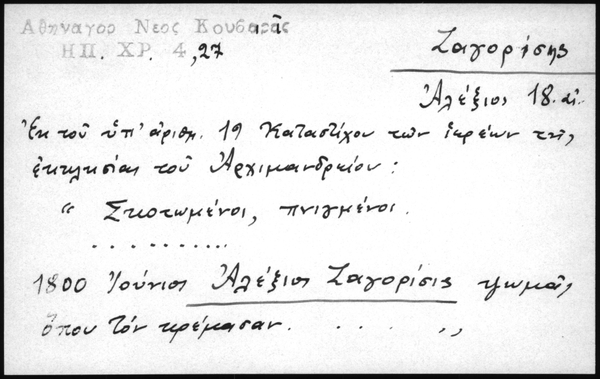 Αθηναγορ Νεος Κουβαρᾶς
ΗΠ. ΧΡ. 4,27
Ζαγορίσης
Ἀλέξιος 18. αἰ.
Ἐκ τοῦ ὑπ' ἀριθμ. 19 Καταστίχου τῶν ἱερέων τῆς
ἐκκλησίας τοῦ Ἀρχιμανδρείου:
" Σκοτωμένοι, πνιγμένοι.
. . . . . . . . . .
1800 Ἰούνιος Ἀλέξιος Ζαγορίσις ψωμᾶς
ὅπου τόν κρέμασαν. . . . . "